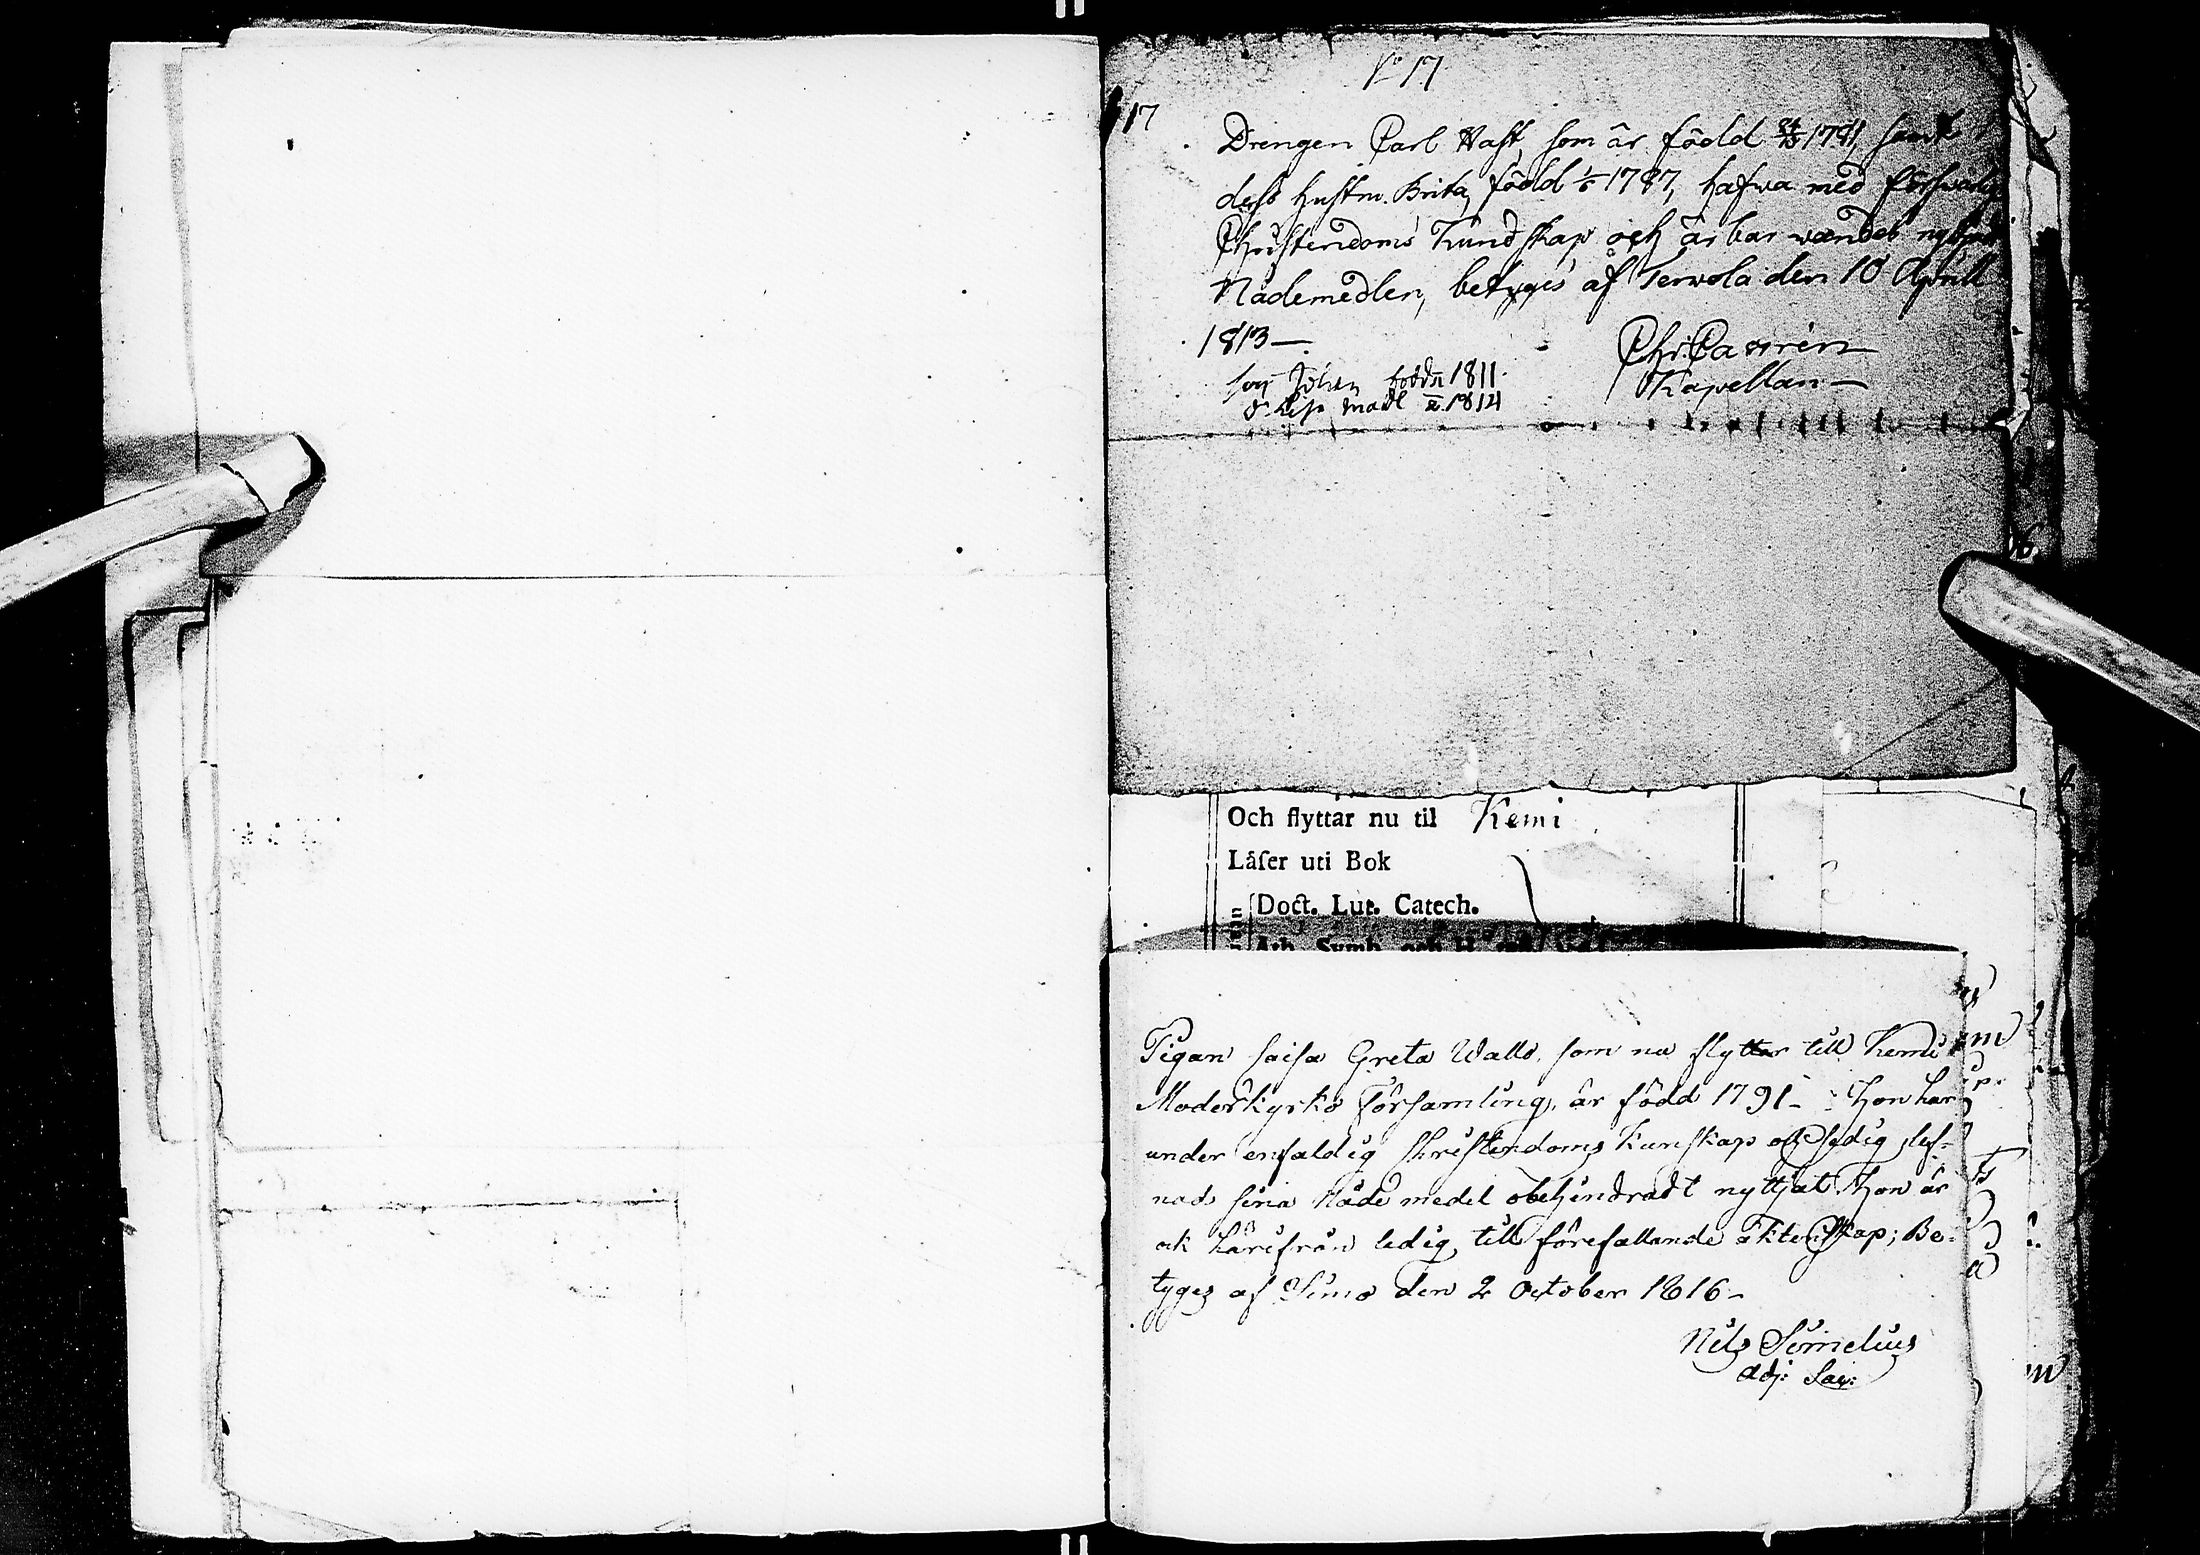 No 17
17
Drengen Carl Hast, som är född 24/3 1781, samt
dess hustru Brita, född 1/6 1787, hafwa med förswarlig
Christendoms Kundskap och ärbar wandel nyttjat
Nådemedlen, betyges af Terwola den 10 Aprill
1813—
Chr. Castrén
Kapellan—
son Johan född 1811
d. Lisa Mad 1814
Och flyttar nu til Kemi
Läſer uti Bok
Doct. Lut. Catech.
Ath. Symb. och
Pigan Caisa Greta Walls, som nu flyttar till Kemi
Moderkyrko Församling, är född 1791 - Hon har
under enfaldig Christendoms Kunskap och sedig lef-
nad sina Nådemedel obehindradt nyttjat. Hon är
ock härifrån ledig, till förefallande äktenskap; Be-
tyges af Simo den 2 October 1816-
Nils
adj: Sac: